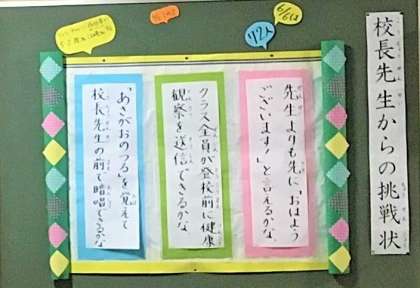 校長先生からの挑戦状
先生よりも先に、「おはよう
ございます。」と言えるかな。
クラス全員が登校前に健康
観察を送信できるかな。
「あさがおのつる」を覚えて
校長先生の前で暗唱できるかな